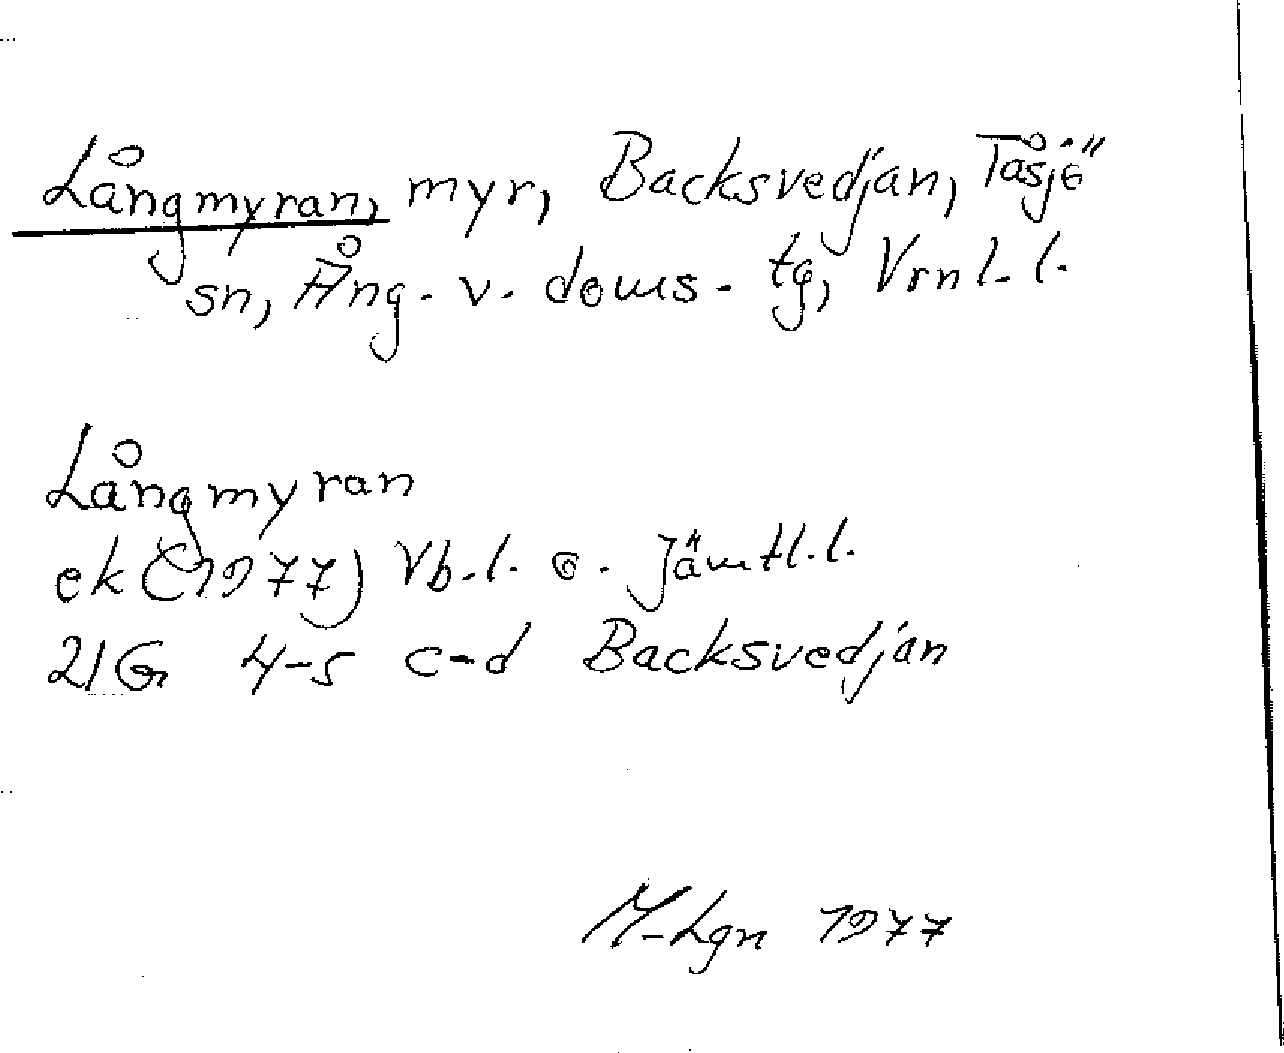 Långmyran, myr, Backsvedjan, Tåsjö
sn, Ång. v. doms. tg, Vrnl.l.
Långmyran
ek (1977) Vb.l. o. Jämtl.l.
21G 4-5 c-d Backsvedjan
M-Lgn 1977